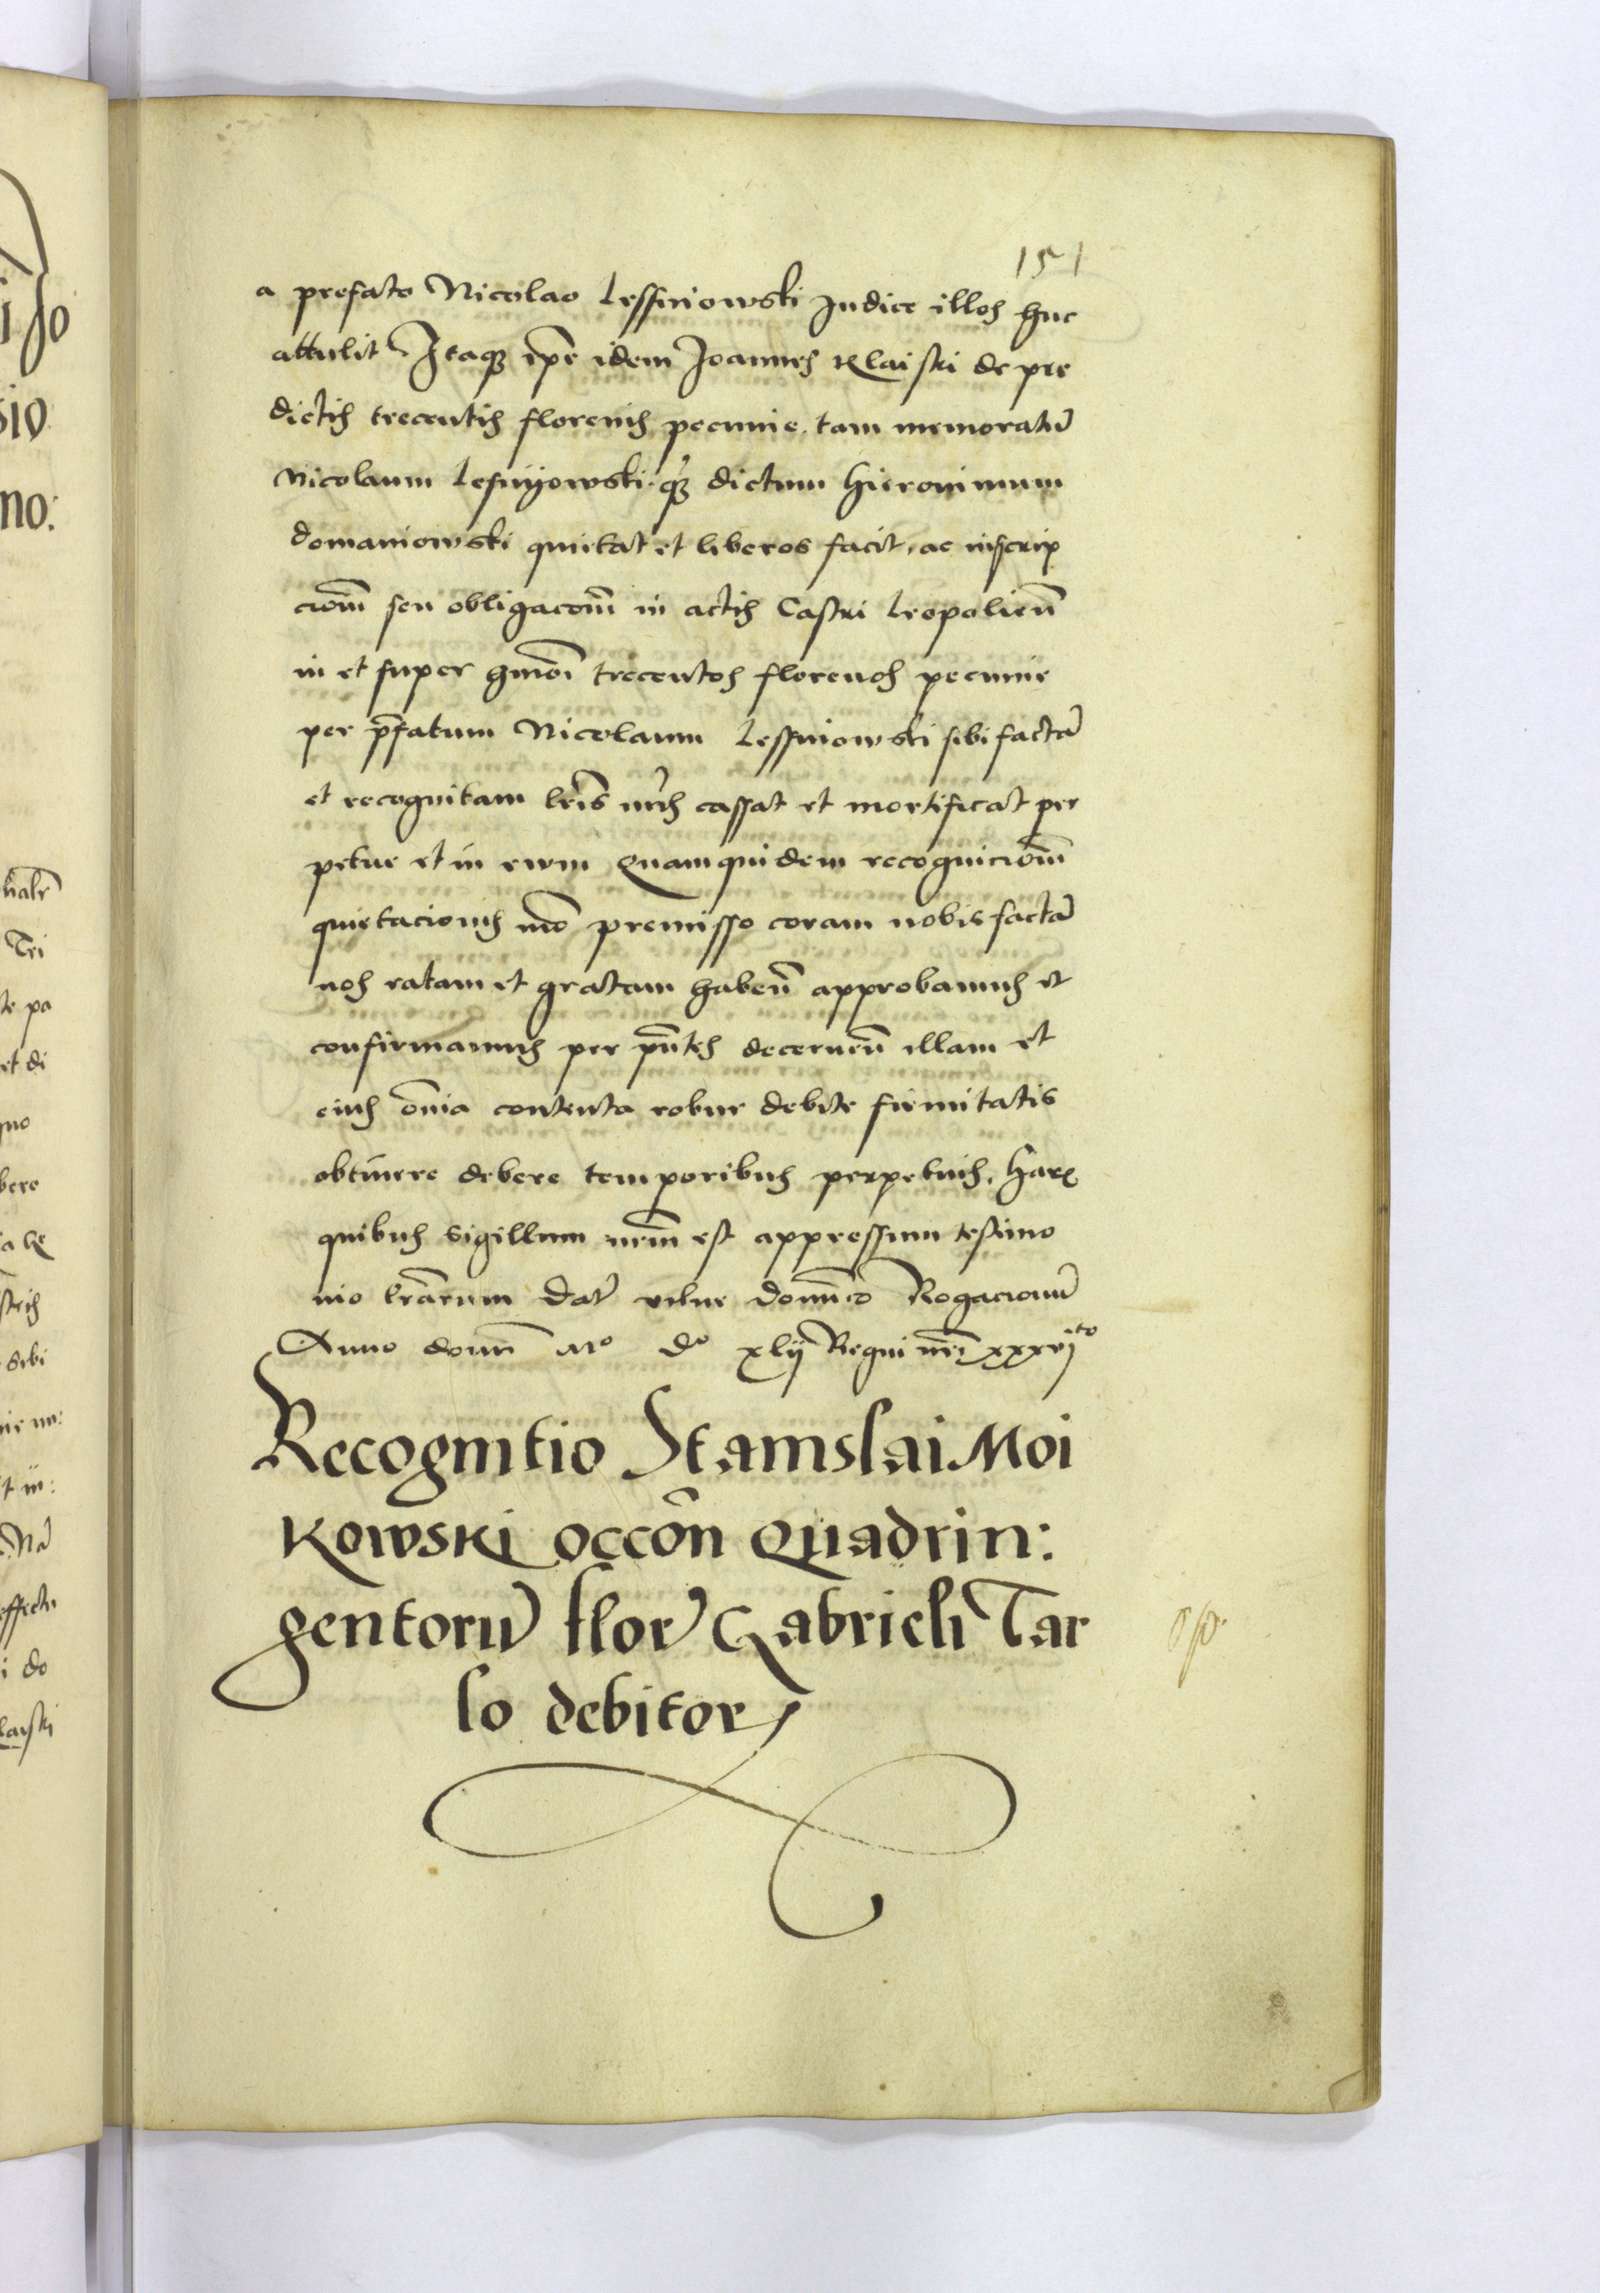 151
a prefato Nicolao Lessniowski Judice illos huc
attulit Itaq3 ip̄e idem Joannes Klaiski de pre
dictis trecentis florenis pecunie tam memoratū
Nicolaum Lesnijowski q3 dictum Hieronimum
domaniowski quietat et liberos facit, ac inscrip
ciom̄ seu obligacom̄ in actis Castri Leopolien̄
in et super hmōi trecentos florenos pecunie
per p̄fatum Nicolaum Lessniowski sibi factā
et recognitam lr̄is nr̄is cassat et mortificat per
petue et in ewm Quamquidem recogniciom̄
quietacionis mō premisso coram nobis factā
nos ratam et gratam haben̄ approbamus et
confirmamus per pn̄tes decernen̄ illam et
eius om̄ia contenta robur debite firmitatis
obtinere debere temporibus perpetuis, Harꝝ
quibus sigillum nrm̄ est appressum testimo
nio lr̄arum Dat̄ vilne domīco Rogacionū
Anno domī Mº dº xlij Regni nr̄i xxxvjto
Recognitio Stanislai Moi
kowski occōn Quadrin:
gentorū flor̄ Gabrieli Tar
lo debitorꝝ